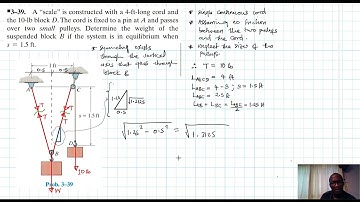 *3–39. A "scale" is constructed with a 4-ft-long cord and
the 10-lb block D. The cord is fixed to a pin at A and passes
over two small pulleys. Determine the weight of the
suspended block B if the system is in equilibrium when
s = 1.5 ft.
* Symmetry exists
through the vertical
axis that pass through
block B
1 ft
A
C
s = 1.5 ft
T
T
B
D
10 lb
W
Prob. 3–39
1.25
0.5
√1.3125
√1.25² - 0.5² = √1.3125
+
* Single continuous cord
* Assuming no friction
between the two pulleys
and the cord.
* Neglect the sizes of the
pulleys
∴ T = 10 lb
L_ABCD = 4 ft
L_ABC = 4 - s ; s = 1.5 ft
L_ABC = 2.5 ft